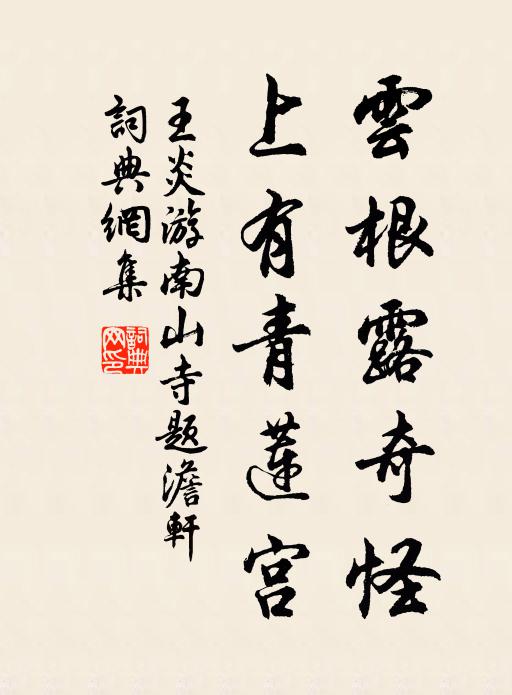 雲根露奇怪
上有青蓮宮
王炎游南山寺題澹軒
詞典網集
詞典網印